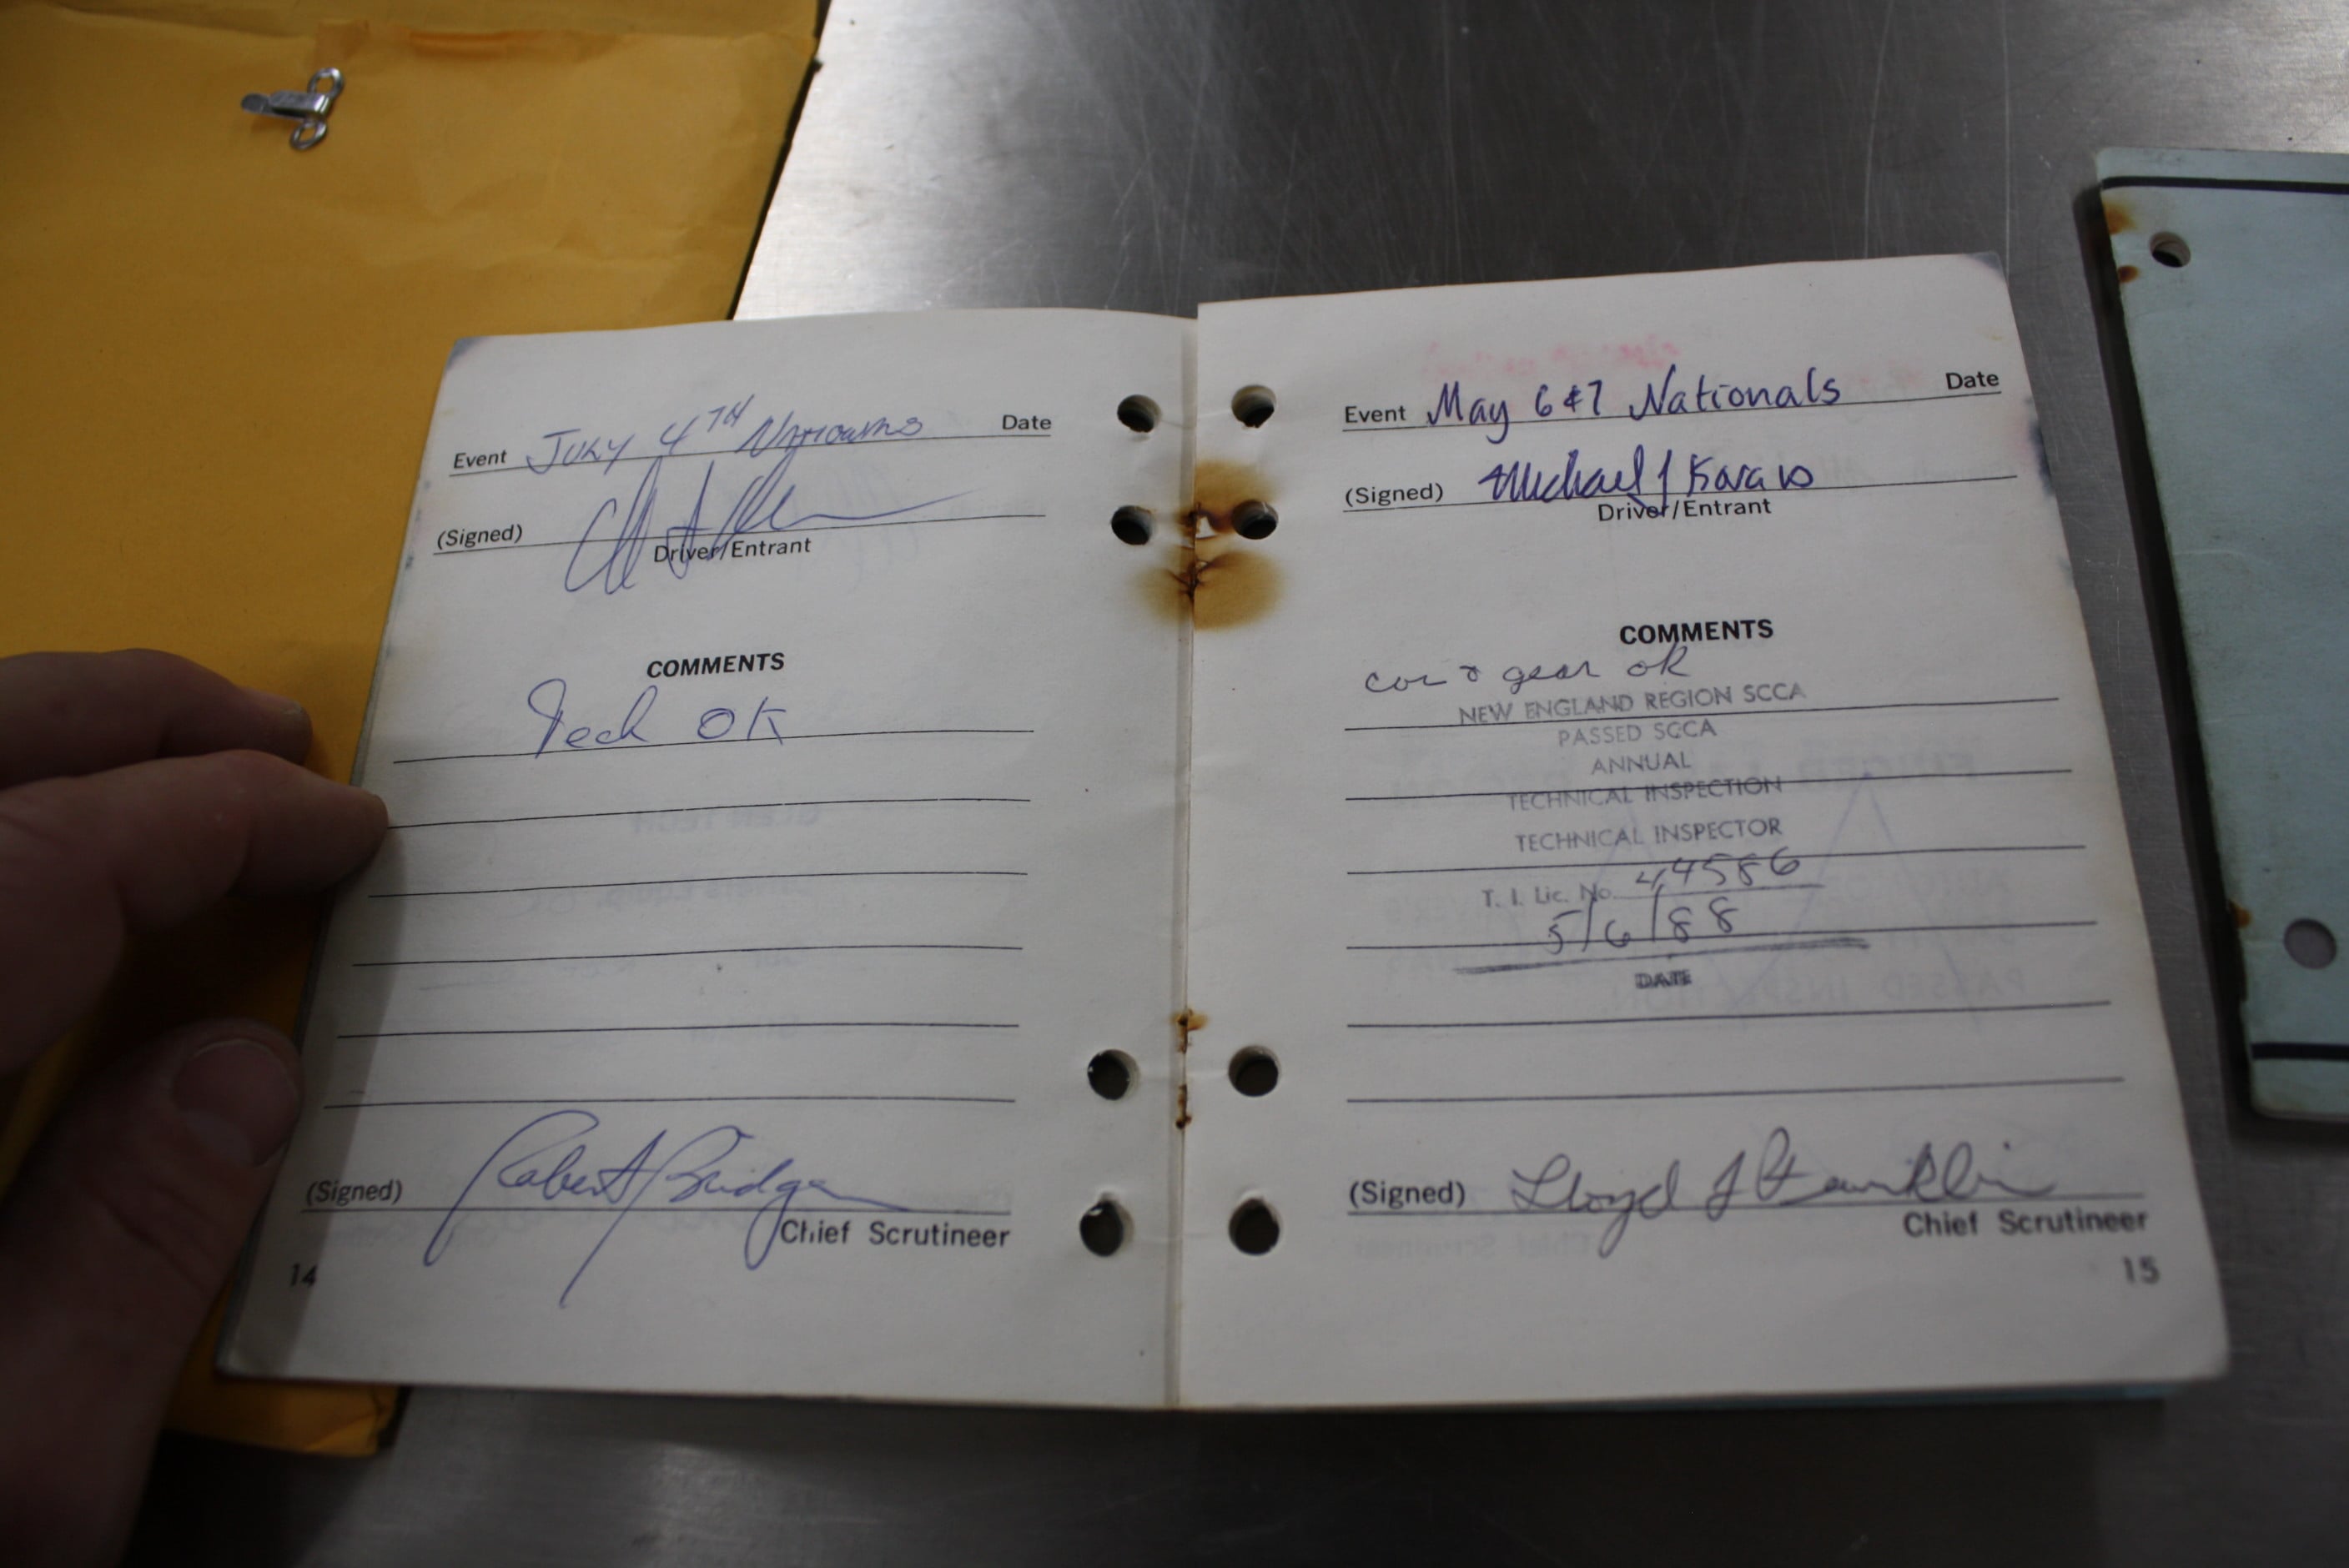 Event July 4TH Nationals Date
(Signed)
Driver/Entrant
COMMENTS
Tech OK
(Signed) Robert Bridge
Chief Scrutineer
14
Event May 6 & 7 Nationals Date
(Signed) Michael J
Driver/Entrant
COMMENTS
car & gear ok
NEW ENGLAND REGION SCCA
PASSED SCCA
ANNUAL
TECHNICAL INSPECTION
TECHNICAL INSPECTOR
T. I. Lic. No. 44586
5/6/88
DATE
(Signed) Lloyd J Franklin
Chief Scrutineer
15